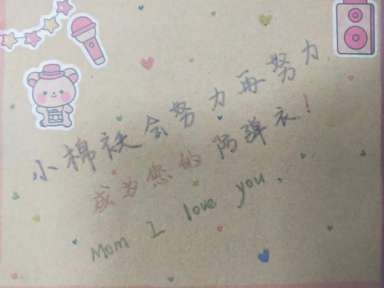 小棉袄会努力再努力
成为您的防弹衣！
Mom I love you.